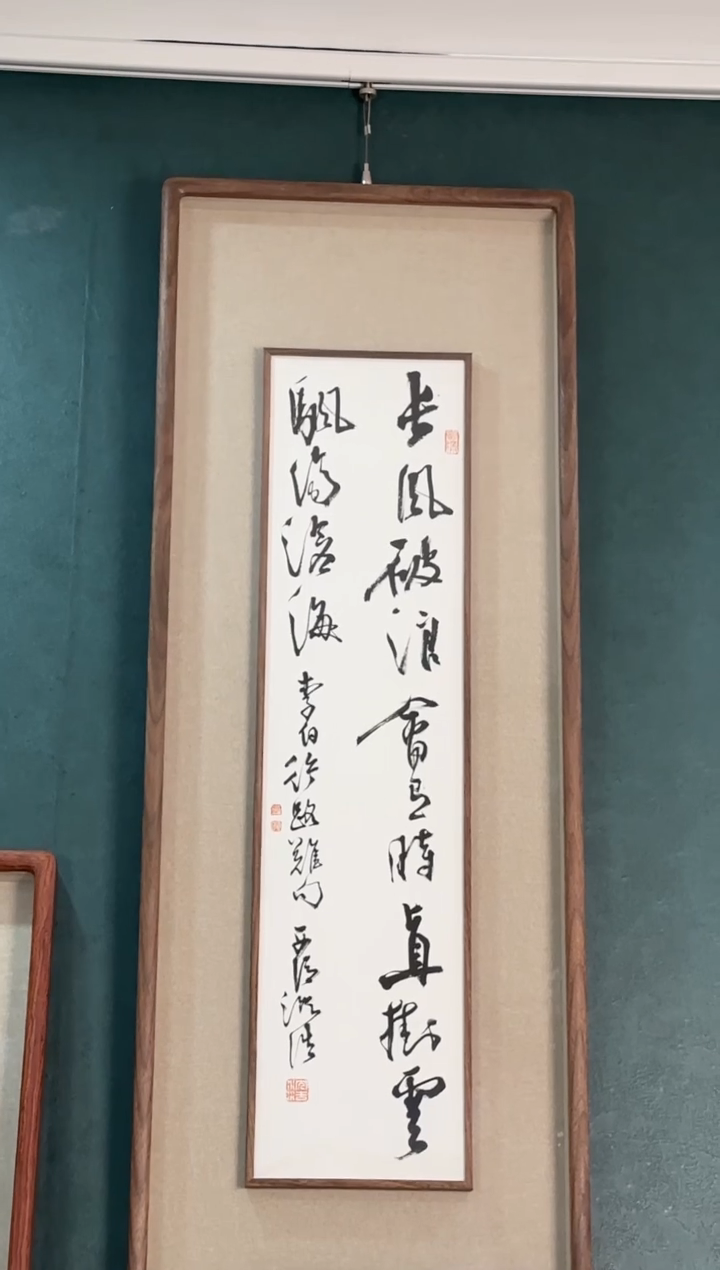 長風破浪會有時直掛雲
颿濟滄海 李白行路難句